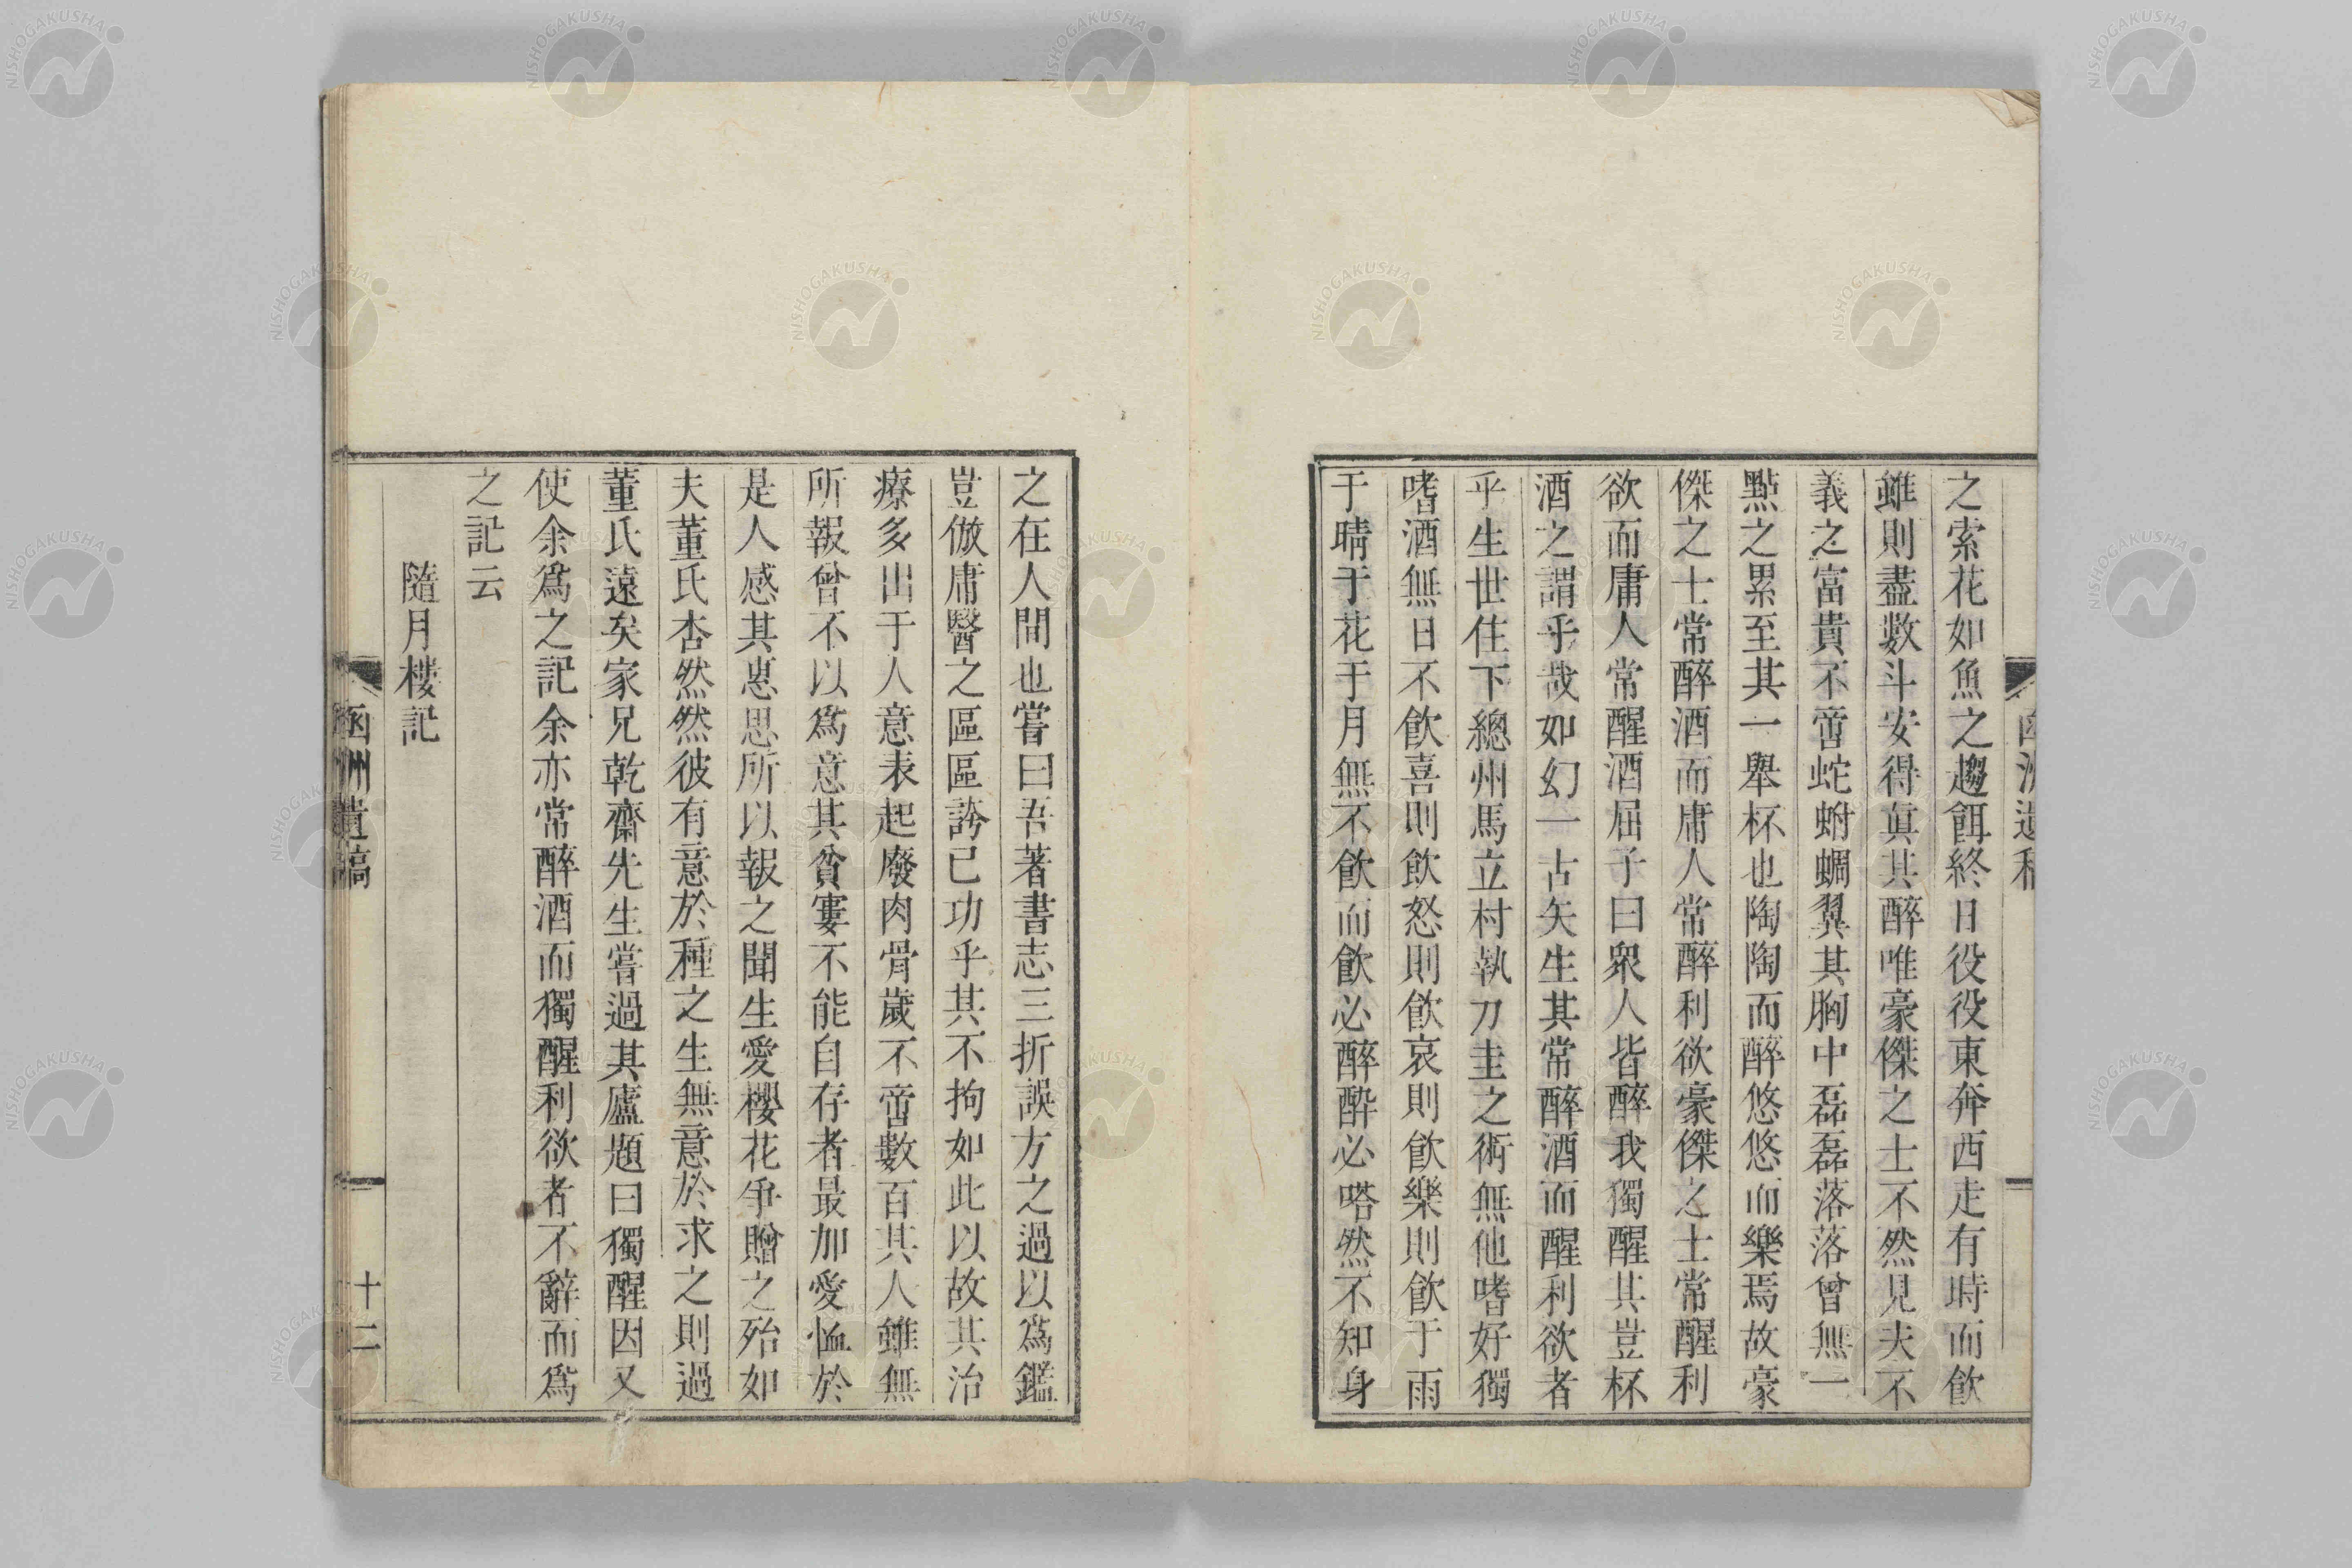 之索花如魚之趨餌終日役役東奔西走有時而飮
雖則盡數斗安得眞其醉唯豪傑之士不然見夫不
義之富貴不啻蛇蚹蜩翼其胸中磊磊落落曾無一
點之累至其一擧杯也陶陶而醉悠悠而樂焉故豪
傑之士常醉酒而庸人常醉利欲豪傑之士常醒利
欲而庸人常醒酒屈子曰衆人皆醉我獨醒其豈杯
酒之謂乎哉如幻一古矢生其常醉酒而醒利欲者
乎生世住下總州馬立村執刀圭之術無他嗜好獨
嗜酒無日不飮喜則飮怒則飮哀則飮樂則飮于雨
于晴于花于月無不飮而飮必醉醉必嗒然不知身
之在人間也嘗曰吾著書志三折誤方之過以爲鑑
豈倣庸醫之區區誇己功乎其不拘如此以故其治
療多出于人意表起廢肉骨歲不啻數百其人雖無
所報曾不以爲意其貧窶不能自存者最加愛恤於
是人感其惠思所以報之聞生愛櫻花爭贈之殆如
夫董氏杏然然彼有意於種之生無意於求之則過
董氏遠矣家兄乾齋先生嘗過其廬題曰獨醒因又
使余爲之記余亦常醉酒而獨醒利欲者不辭而爲
之記云
隨月樓記
函洲遺稿
十二